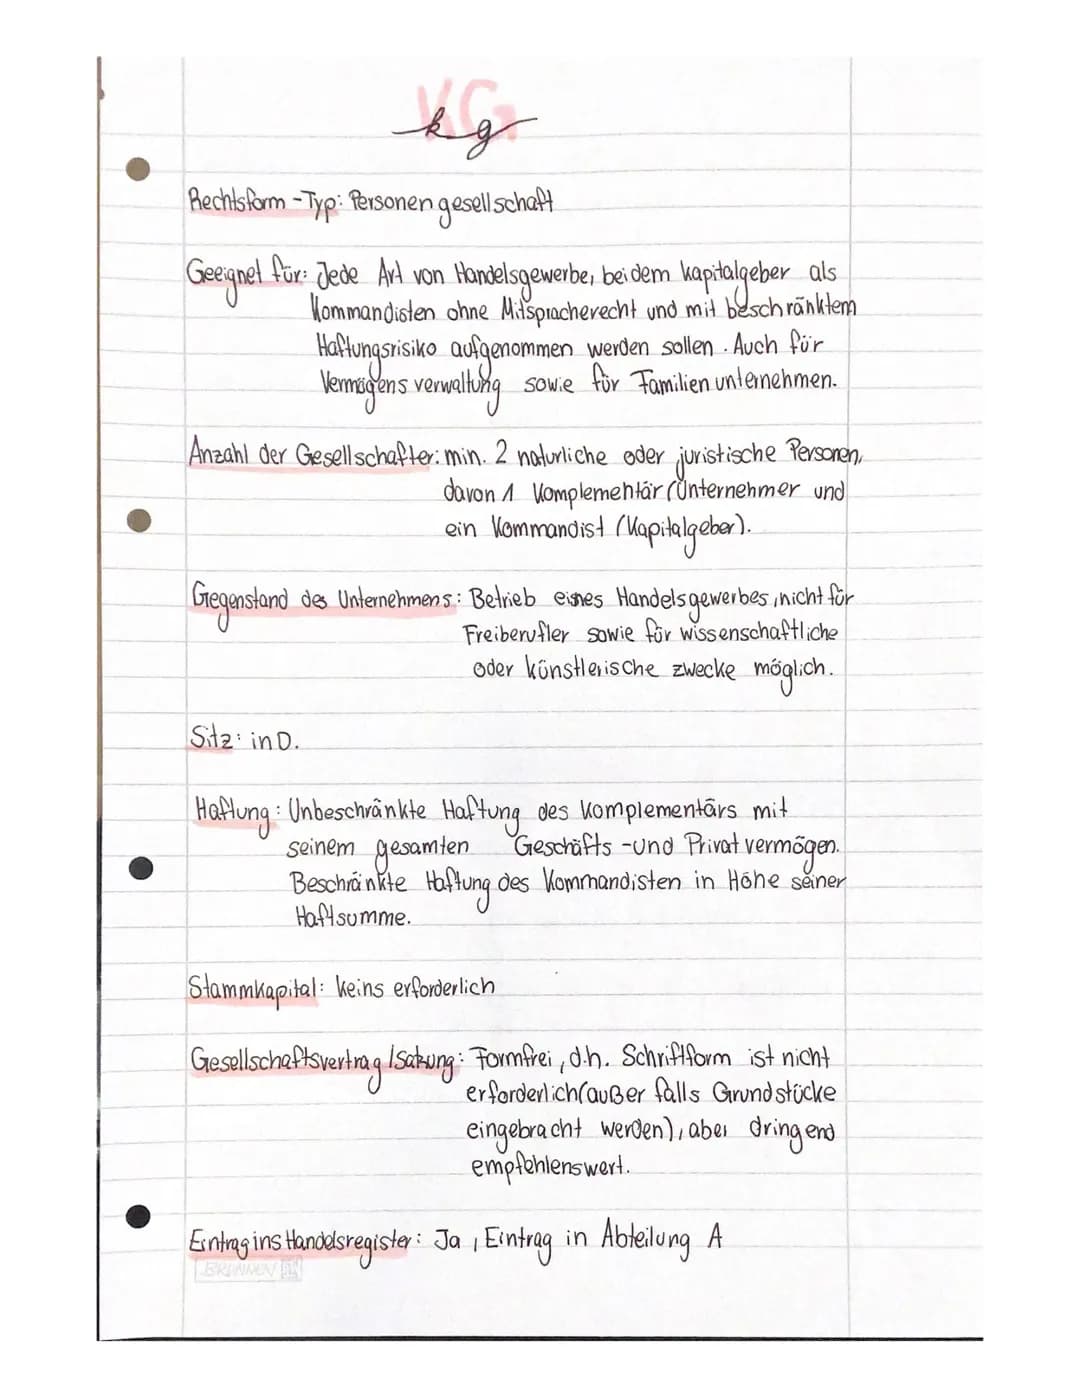 KG
kg
Rechtsform-Typ: Personengesellschaft
Geeignet für: Jede Art von Handelsgewerbe, bei dem kapitalgeber als
Kommandisten ohne Mitspracherecht und mit beschränktem
Haftungsrisiko aufgenommen werden sollen. Auch für
Vermögensverwaltung sowie für Familienunternehmen.
Anzahl der Gesellschafter: min. 2 naturliche oder juristische Personen,
davon 1 Komplementär (Unternehmer und
ein Kommandist (Kapitalgeber).
Gegenstand des Unternehmens: Betrieb eines Handelsgewerbes, nicht für
Freiberufler sowie für wissenschaftliche
oder künstlerische zwecke möglich.
Sitz: in D.
Haftung: Unbeschränkte Haftung des Komplementärs mit
seinem gesamten Geschäfts-und Privatvermögen.
Beschränkte Haftung des Kommandisten in Höhe seiner
Haftsumme.
Stammkapital: keins erforderlich
Gesellschaftsvertrag/Satzung: Formfrei, d.h. Schriftform ist nicht
erforderlich(außer falls Grundstücke
eingebracht werden), aber dringend
empfehlenswert.
Eintrag ins Handelsregister: Ja, Eintrag in Abteilung A
BRUNNEN